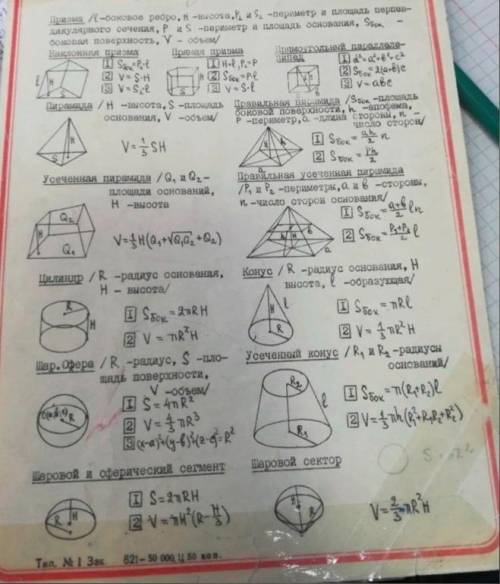 Призма /ℓ-боковое ребро, H-высота, P₁ и S₁ -периметр и площадь перпен-
дикулярного сечения, P и S -периметр и площадь основания, Sбок -
боковая поверхность, V - объем/
Наклонная призма
1 Sбок=P₁ℓ
2 V=S·H
3 V=S₁ℓ
Прямая призма
1 H=ℓ, P₁=P
2 Sбок=Pℓ
3 V=S·ℓ
Прямоугольный параллеле-
пипед
1 d²=a²+b²+c²
2 Sбок=2(a+b)c
3 V=abc
Пирамида / H -высота, S -площадь
основания, V -объем/
V=1/3 SH
Правильная пирамида /Sбок -площадь
боковой поверхности, h -апофема,
P -периметр, a -длина стороны, n -
число сторон/
1 Sбок=ah/2 n
2 Sбок=Ph/2
Усеченная пирамида /Q₁ и Q₂ -
площади оснований,
H -высота
V=1/3H(Q₁+√Q₁Q₂+Q₂)
Правильная усеченная пирамида
/P₁ и P₂ -периметры, a и b -стороны,
n -число сторон основания/
1 Sбок=a+b/2 ℓn
2 Sбок=P₁+P₂/2 ℓ
Цилиндр / R -радиус основания,
H - высота/
1 Sбок=2πRH
2 V = πR²H
Конус / R -радиус основания, H
высота, ℓ -образующая/
1 Sбок = πRℓ
2 V = 1/3 πR²H
Шар. Сфера / R -радиус, S -пло-
щадь поверхности,
V -объем/
1 S=4πR²
2 V=4/3 πR³
3 (x-a)²+(y-b)²+(z-c)²=R²
Усеченный конус / R₁ и R₂ -радиусы
оснований/
1 Sбок = π(R₁+R₂)ℓ
2 V=1/3 πh(R₁²+R₁R₂+R₂²)
Шаровой и сферический сегмент
1 S=2πRH
2 V=πH²(R-H/3)
Шаровой сектор
V=2/3 πR²H
Тип. № 1 Зак. 621- 50 000, Ц 50 коп.